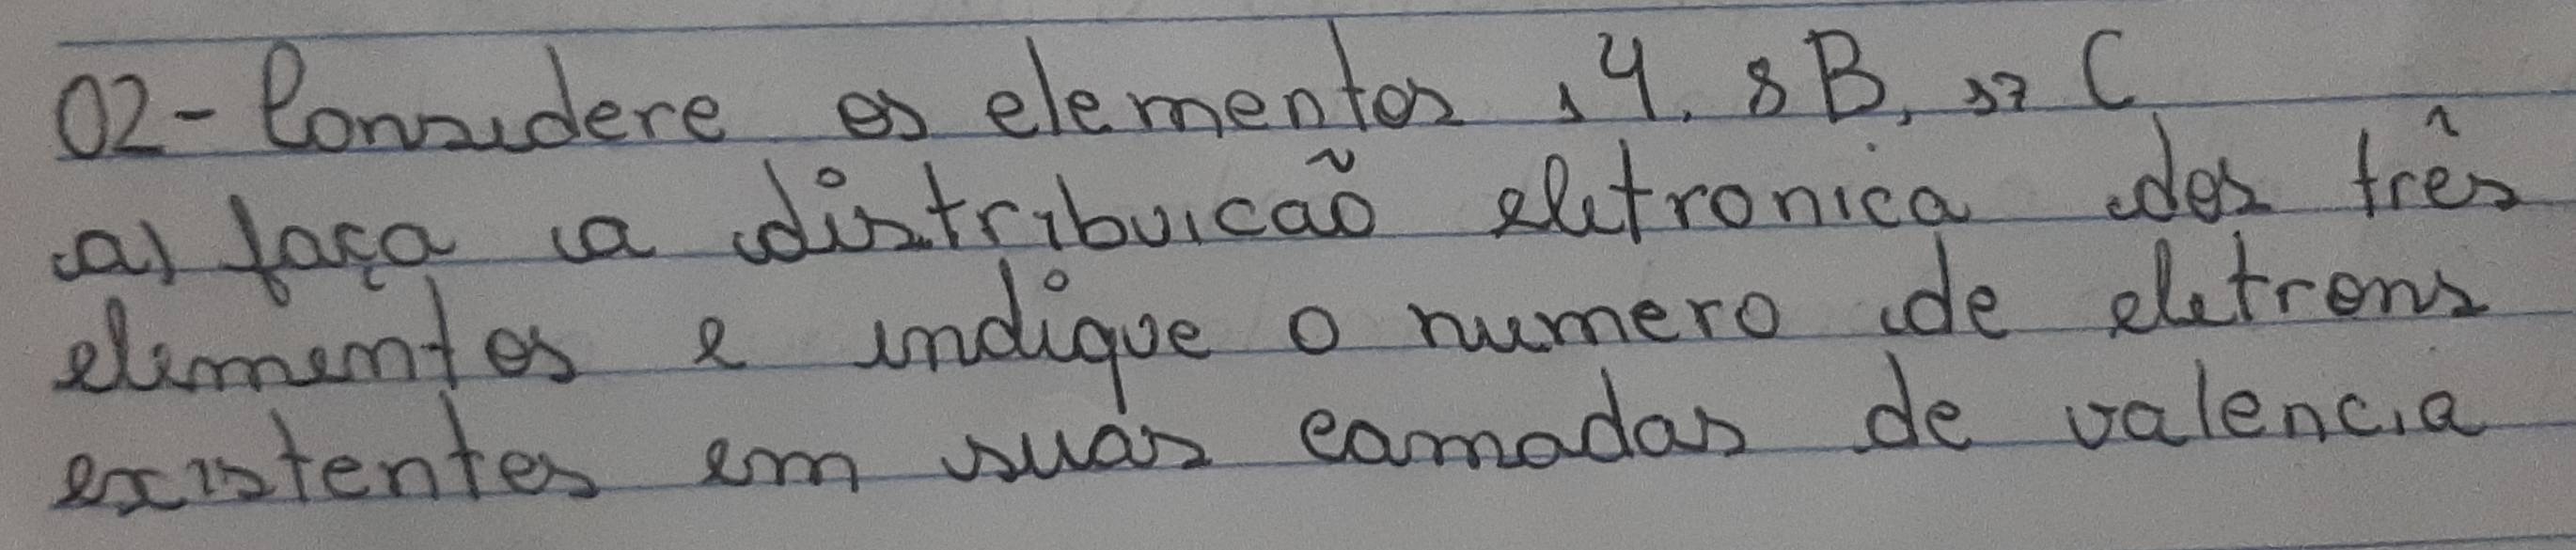 02- Considere os elementos 1 Y. 8 B, 37 C
a) faça a distribuicaõ eletronica dos três
elementos e indique o numero de eletrons
existentes em suas camadas de valencia